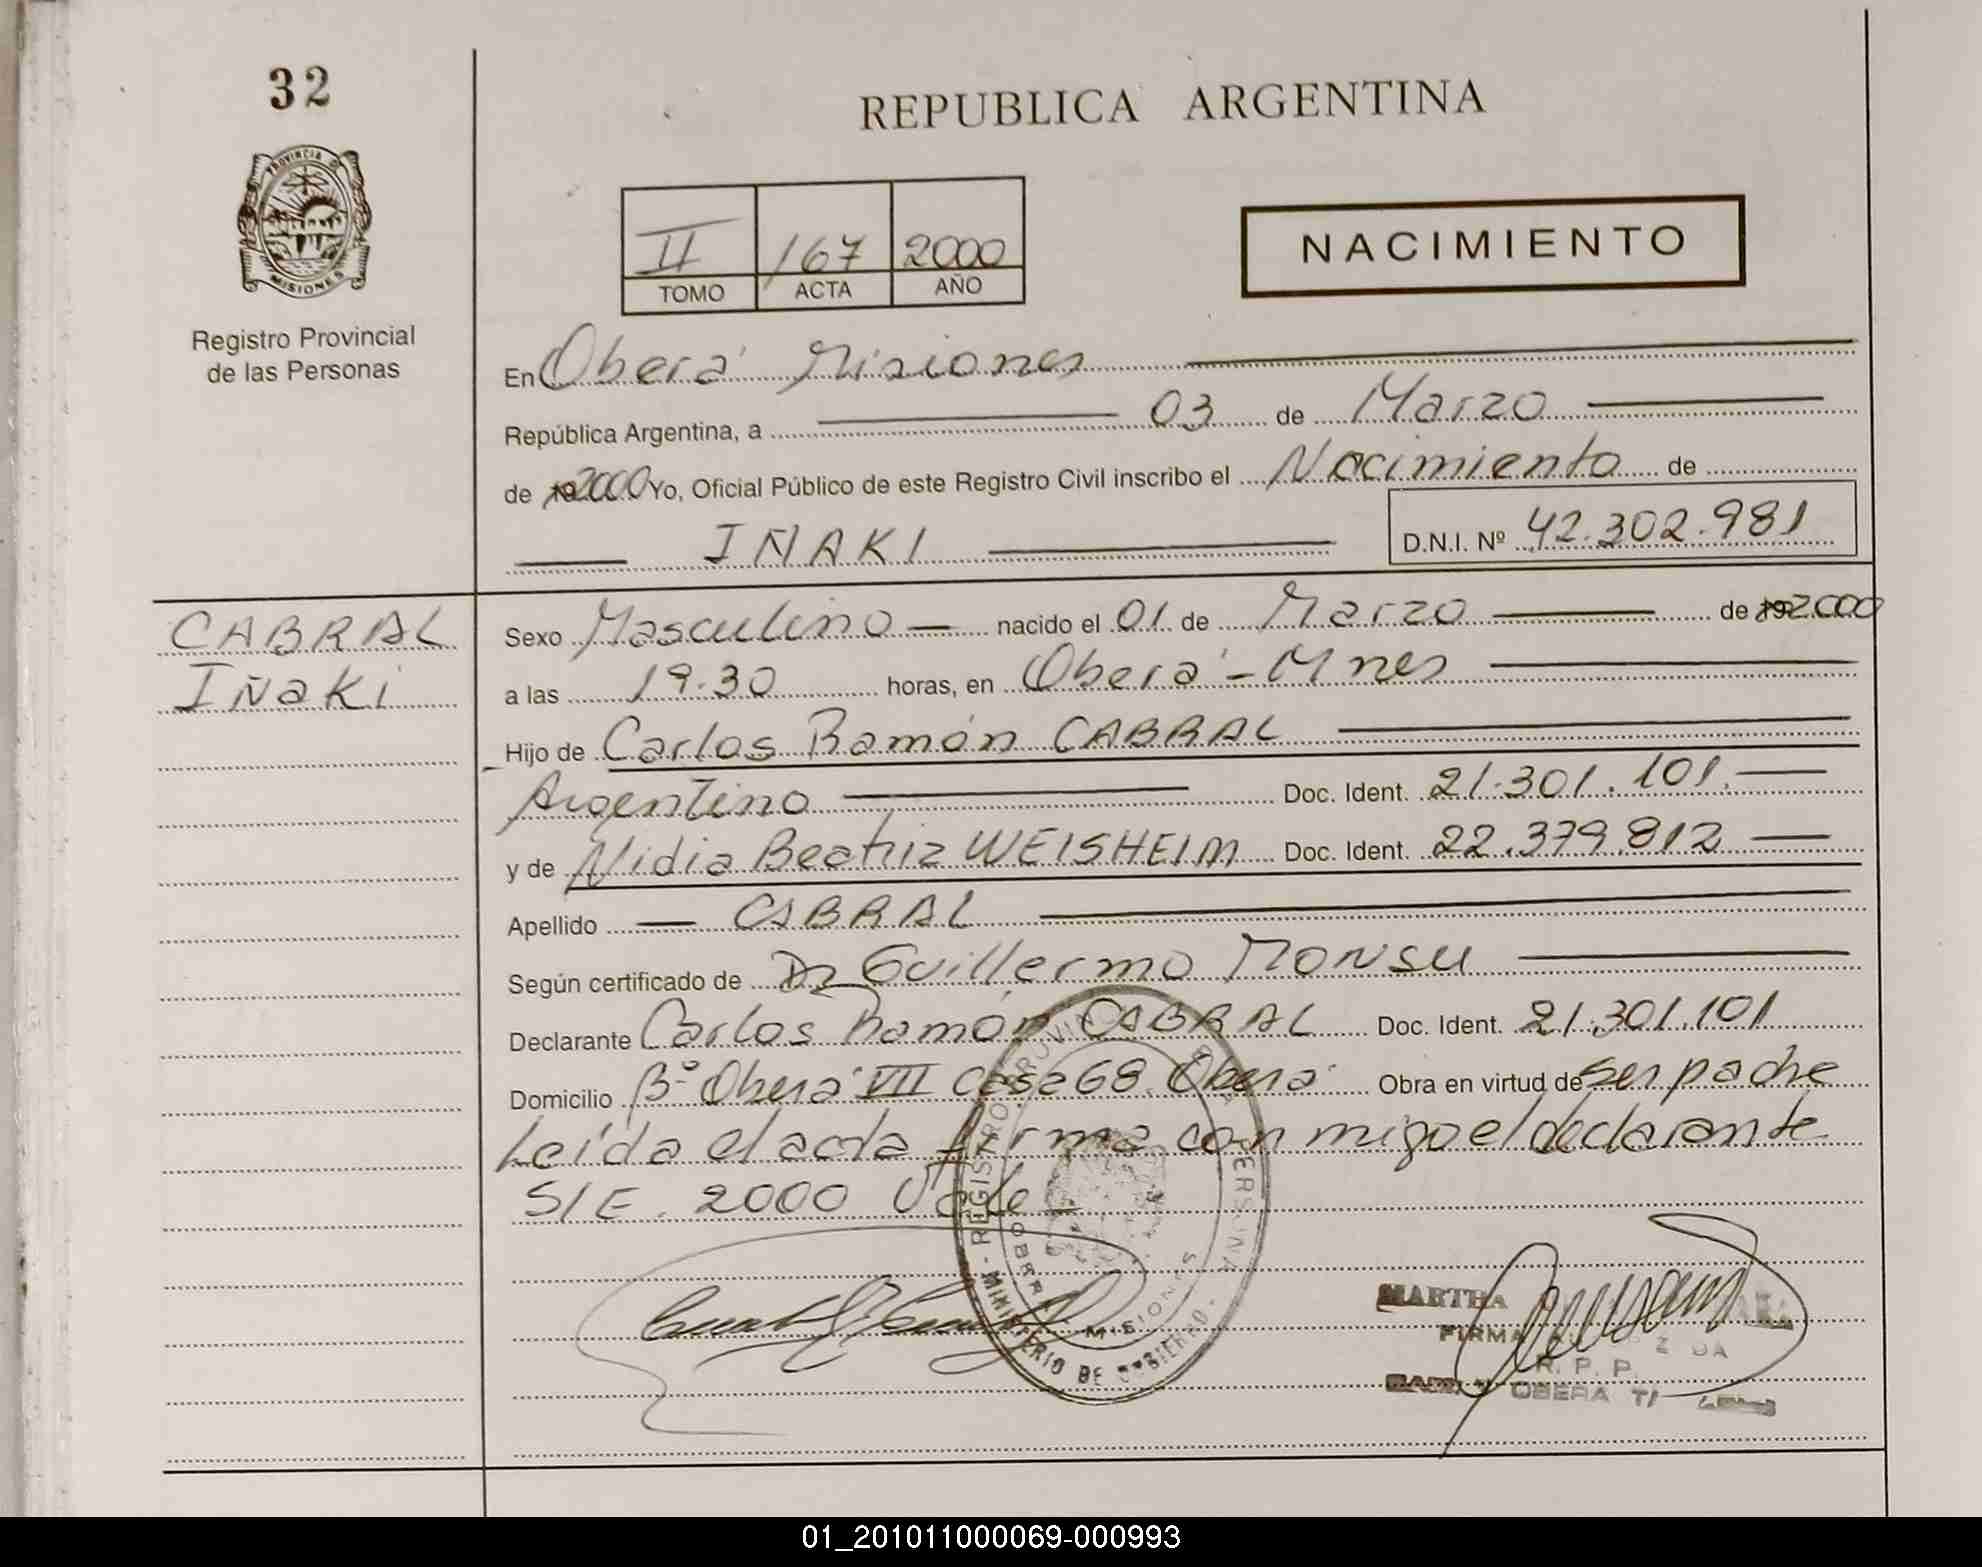 32
REPUBLICA ARGENTINA
PROVINCIA D
MISIONES
Registro Provincial
de las Personas
II 167 2000
TOMO ACTA AÑO
NACIMIENTO
En Oberá Misiones
República Argentina, a 03 de Marzo
de 192000 Yo, Oficial Público de este Registro Civil inscribo el Nacimiento de
IÑAKI D.N.I. Nº 42.302.981
CABRAL
IÑaKi
Sexo Masculino nacido el 01 de Marzo de 192000
a las 19.30 horas, en Oberá - Mnes
Hijo de Carlos Ramón CABRAL
Argentino Doc. Ident. 21.301.101.
y de Nidia Beatriz WEISHEIM Doc. Ident. 22.379.812
Apellido CABRAL
Según certificado de Dr Guillermo Monsu
Declarante Carlos Ramón CABRAL Doc. Ident. 21.301.101
Domicilio Bº Oberá VII Casa 68. Oberá Obra en virtud de ser padre
Leída el acta firma con migo el declarante
S/E. 2000 Vale
REGISTRO PROVIN
MINISTERIO DE GOBIERNO
MISIONES
MARTHA
FIRMA
R. P. P.
OBERA
01_201011000069-000993